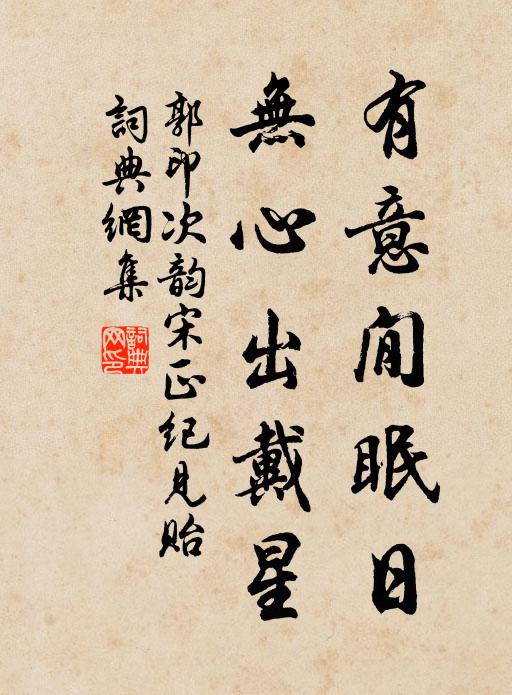 有意閒眠日
無心出戴星
郭印次韵宋正纪见贻
詞典網集
詞典网印